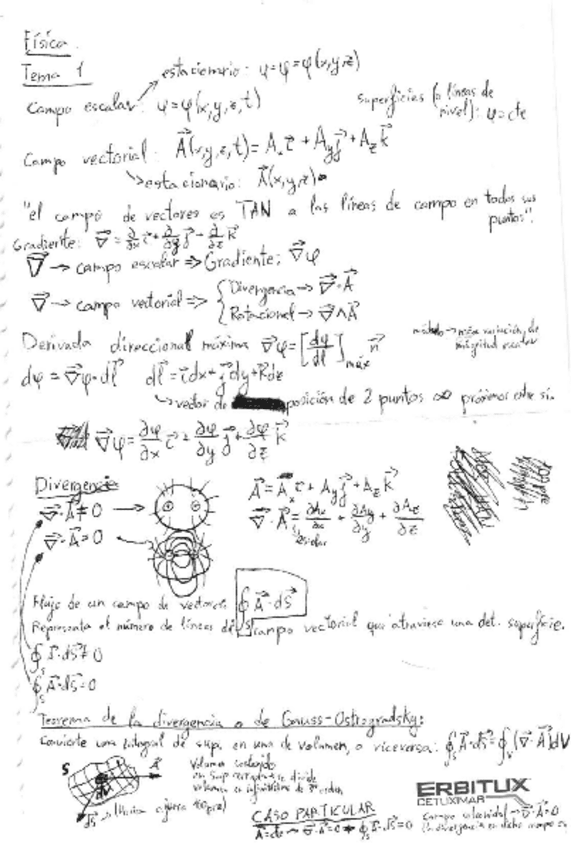 Física
Tema 1
estacionario: φ=φ=φ(x,y,z)
Campo escalar: φ=φ(x,y,z,t)
superficies (o líneas de nivel): φ=cte
Campo vectorial: A⃗(x,y,z,t)=Aₓi⃗+A_yj⃗+A_zk⃗
estacionario: A⃗(x,y,z)
"el campo de vectores es TAN a las líneas de campo en todos sus puntos".
Gradiente: ∇⃗=∂/∂x i⃗+∂/∂y j⃗+∂/∂z k⃗
∇⃗→campo escalar⇒Gradiente: ∇⃗φ
∇⃗→campo vectorial⇒{Divergencia→∇⃗·A⃗
Rotacional→∇⃗∧A⃗
Derivada direccional máxima ∇⃗φ=[dφ/dl]máx n⃗
máx variación de magnitud escalar
dφ=∇⃗φ·dl⃗ dl⃗=i⃗dx+j⃗dy+k⃗dz
→vector de posición de 2 puntos ∞ próximos entre sí.
∇⃗φ=∂φ/∂x i⃗+∂φ/∂y j⃗+∂φ/∂z k⃗
Divergencia
A⃗=Aₓi⃗+A_yj⃗+A_zk⃗
∇⃗·A⃗≠0
∇⃗·A⃗=∂Aₓ/∂x+∂A_y/∂y+∂A_z/∂z
escalar
∇⃗·A⃗=0
Flujo de un campo de vectores ∮A⃗·dS⃗
Representa el número de líneas del campo vectorial que atraviesa una det. superficie.
∮ₛA⃗·dS⃗≠0
∮ₛA⃗·dS⃗=0
Teorema de la divergencia o de Gauss-Ostrogradsky:
Convierte una integral de sup. en una de volumen, o viceversa: ∮ₛA⃗·dS⃗=∮ᵥ(∇⃗·A⃗)dV
S
dV
Volumen
dS⃗→(Hacia afuera
CASO PARTICULAR
∇⃗·A⃗=0⇒∮ₛA⃗·dS⃗=0
campo solenoidal→∇⃗·A⃗=0
ERBITUX
CETUXIMAB